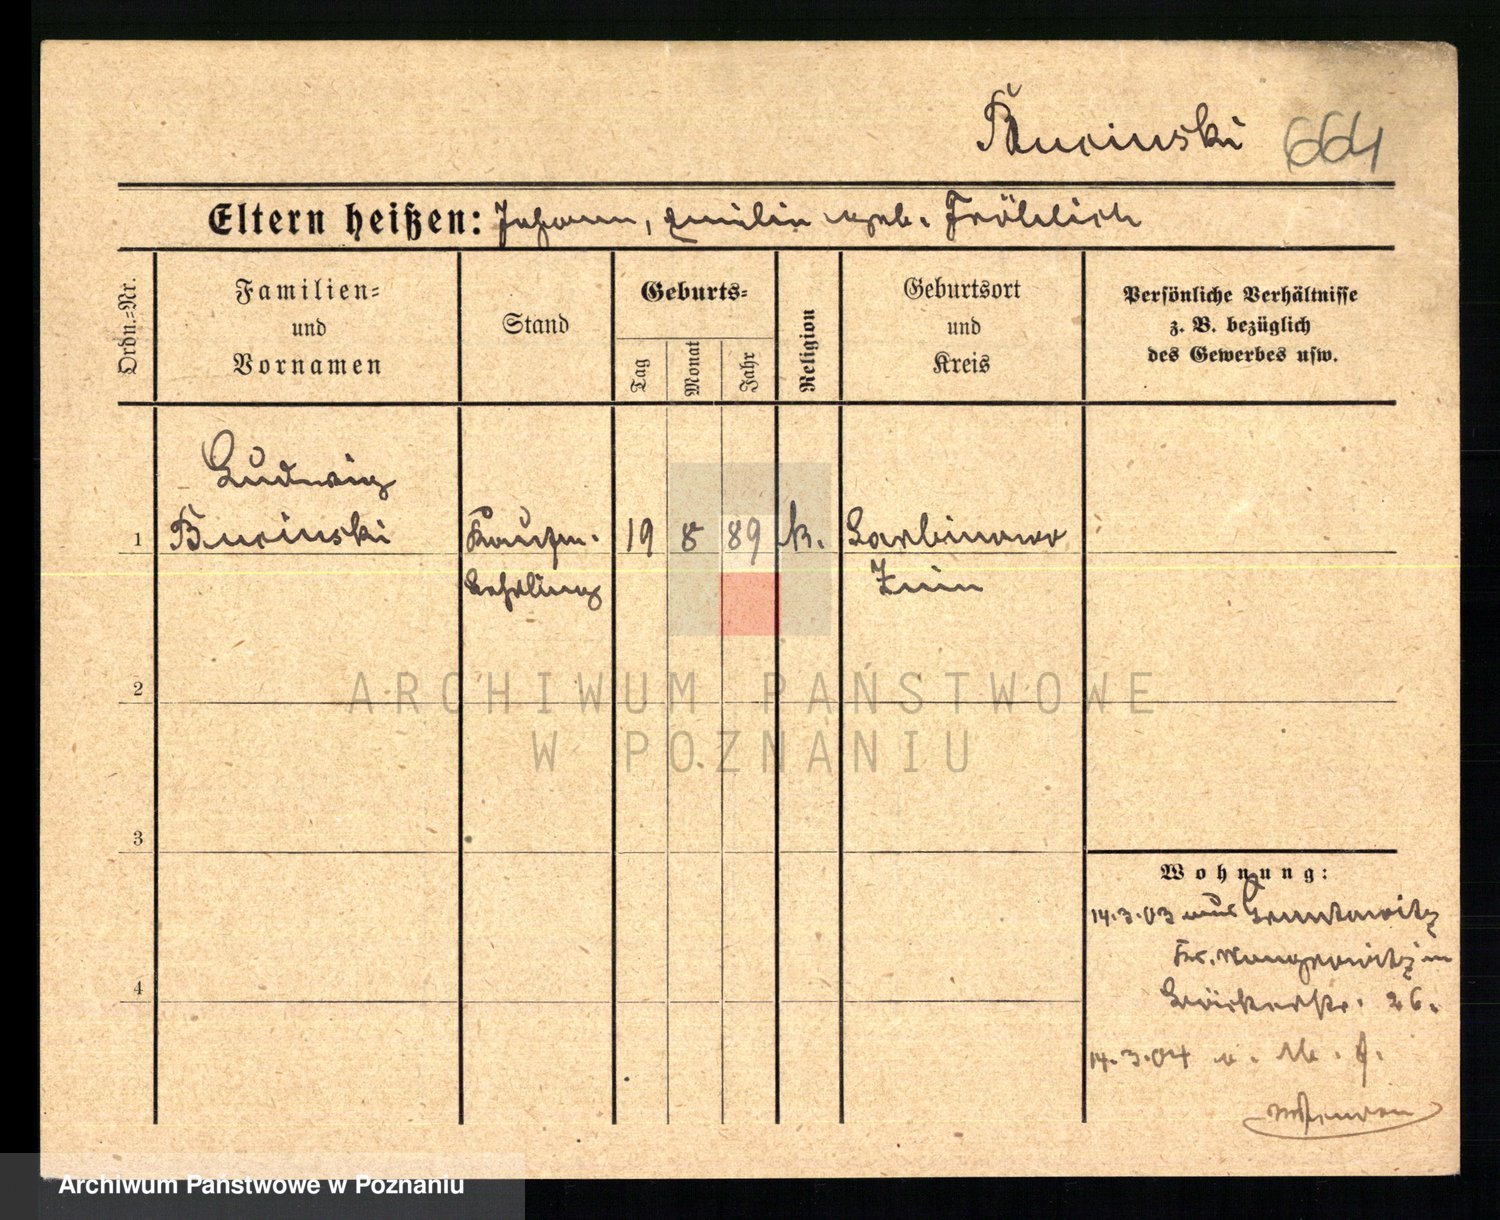 Bucinski 664
Eltern heißen: Johann, Emilie geb. Fröhlich
Ordn.=Nr.
Familien=
und
Vornamen
Stand
Geburts=
Tag
Monat
Jahr
Religion
Geburtsort
und
Kreis
Persönliche Verhältnisse
z. B. bezüglich
des Gewerbes usw.
Ludwig
1 Bucinski Kaufm. 19 8 89 k. Sarbinowo
Lehrling Znin
2
3
4
Wohnung:
14.3.03 aus
Kr. Wongrowitz in
Bäckerstr. 26.
14.3.04
ARCHIWUM PAŃSTWOWE
W POZNANIU
Archiwum Państwowe w Poznaniu